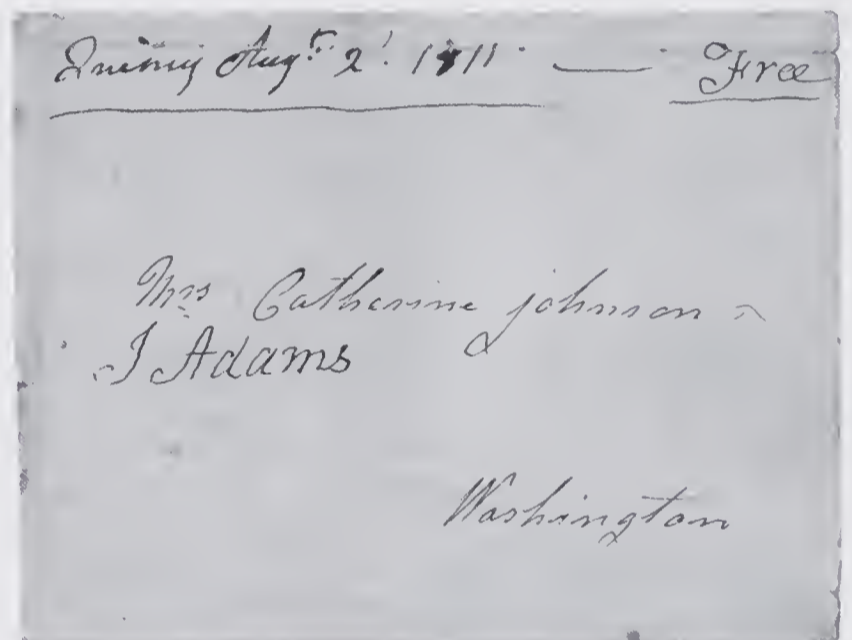 Quincy Augst 2d. 1811. — Free
Mrs Catherine Johnson
J Adams
Washington